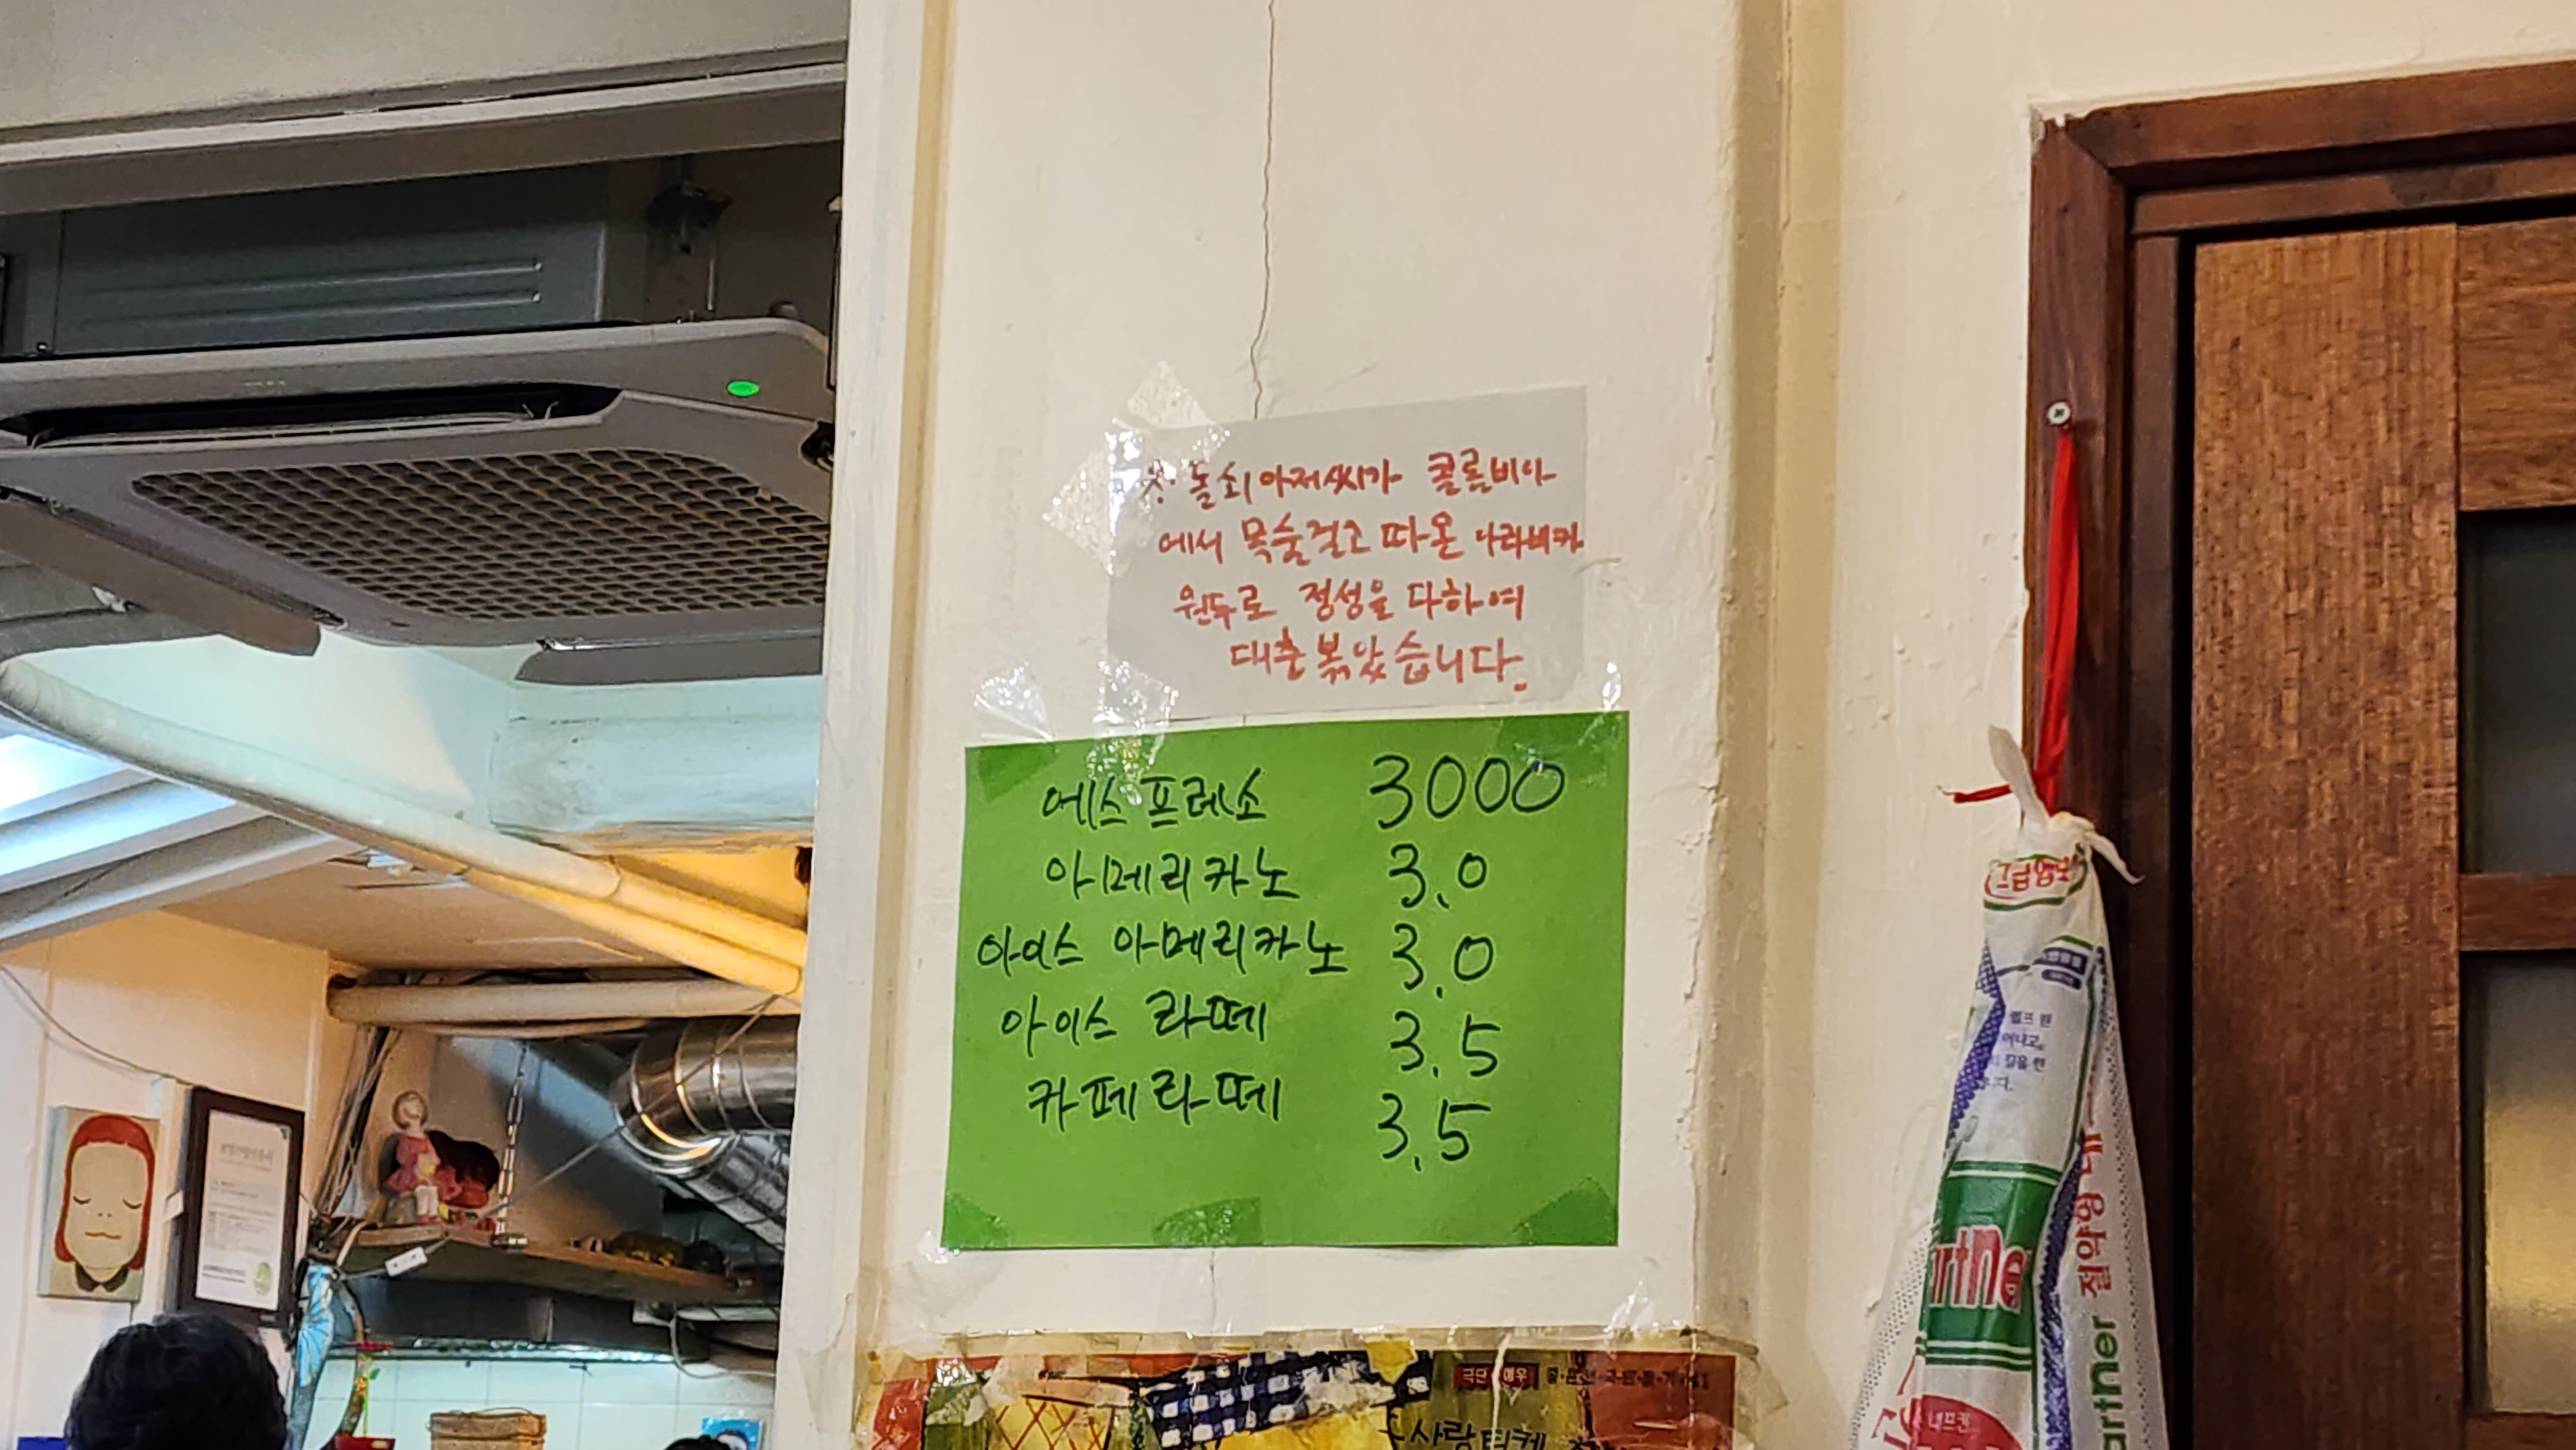 돌쇠아저씨가 콜롬비아
에서 목숨걸고 따온 아라비카
원두로 정성을 다하여
대충볶았습니다.
에스프레소 3000
아메리카노 3.0
아이스 아메리카노 3.0
아이스 라떼 3.5
카페라떼 3.5
사랑티켓
고급냅킨
절약형
artner